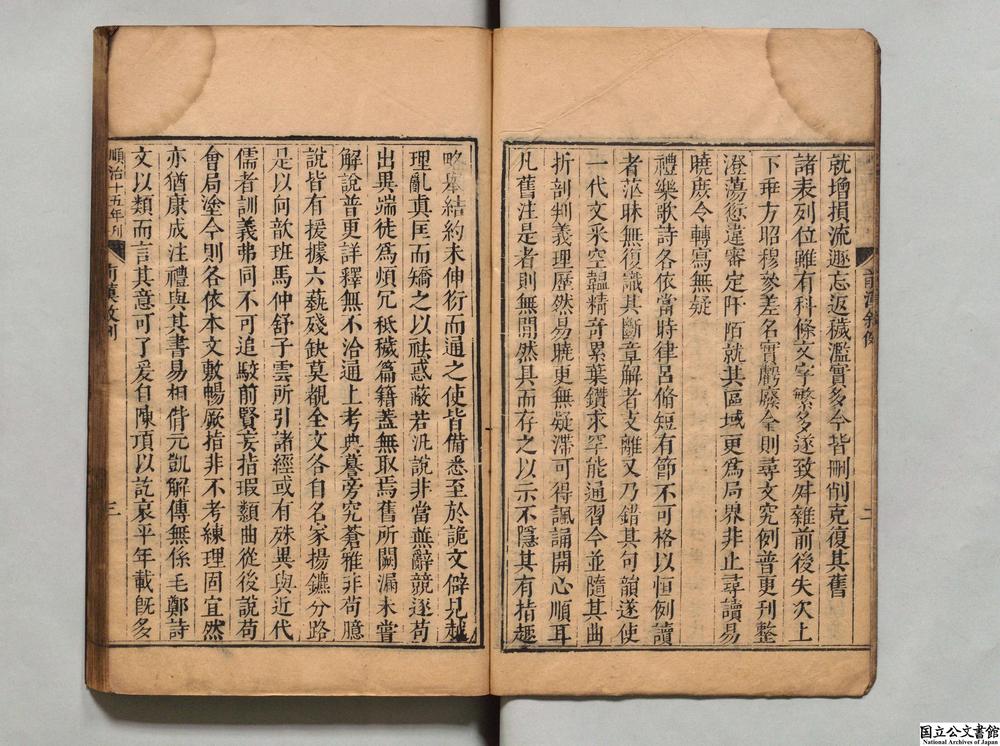 就增損流遯忘返穢濫實多今皆刪削克復其舊
諸表列位雖有科條文字繁多遂致舛雜前後失次上
下乖方昭穆參差名實虧廢今則尋文究例普更刊整
澄蕩愆違審定阡陌就其區域更為局界非止尋讀易
曉庶令轉寫無疑
禮樂歌詩各依當時律呂脩短有節不可格以恒例讀
者茫昧無復識其斷章解者支離又乃錯其句韻遂使
一代文采空韞精奇累葉鑽求罕能通習今並隨其曲
折剖判義理歷然易曉更無疑滯可得諷誦開心順耳
凡舊注是者則無間然具而存之以示不隱其有指趣
前漢敘例
二
略舉結約未伸衍而通之使皆備悉至於詭文僻見越
理亂真匡而矯之以祛惑蔽若汎說非當蕪辭競逐苟
出異端徒為煩冗秪穢篇籍蓋無取焉舊所闕漏未嘗
解說普更詳釋無不洽通上考典謩旁究蒼雅非苟臆
說皆有援據六蓺殘缺莫覩全文各自名家揚鑣分路
是以向歆班馬仲舒子雲所引諸經或有殊異與近代
儒者訓義弗同不可追駮前賢妄指瑕纇曲從後說苟
會局塗今則各依本文敷暢厥指非不考練理固宜然
亦猶康成注禮與其書易相偝元凱解傳無係毛鄭詩
文以類而言其意可了爰自陳項以訖哀平年載既多
順治十五年刊
三
国立公文書館
National Archives of Japan